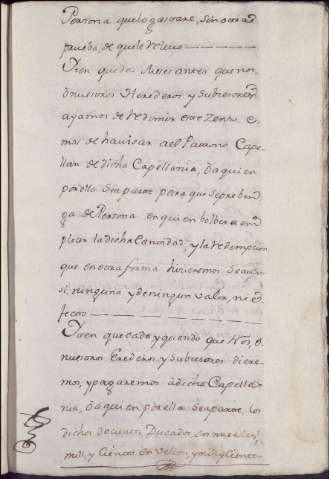 Persona que lo gastare, sin otra
prueba, de que le relevo
Iten que dos meses antes que nos
o nuestros Herederos y subcesores
ayamos de redimir este Zenso, e
mos de havisar a el Patrono Cape
llan de dicha Capellania, o a quien
por ello sea parte para que se preben
ga de Persona en quien bolber a em
plear la dicha Cantidad, y la redempcion
que en otra forma hicieremos sea en
si, ninguna y de ningun valor, ni e
fecto
Iten que cada y quando que Nos, o
nuestros Erederos y subcesores diere
mos, y pagaremos a dicha Capella
nia, o a quien por ella sea parte, los
dichos docientos Ducados en
mill y Ciento en vellon y mill y Ciento